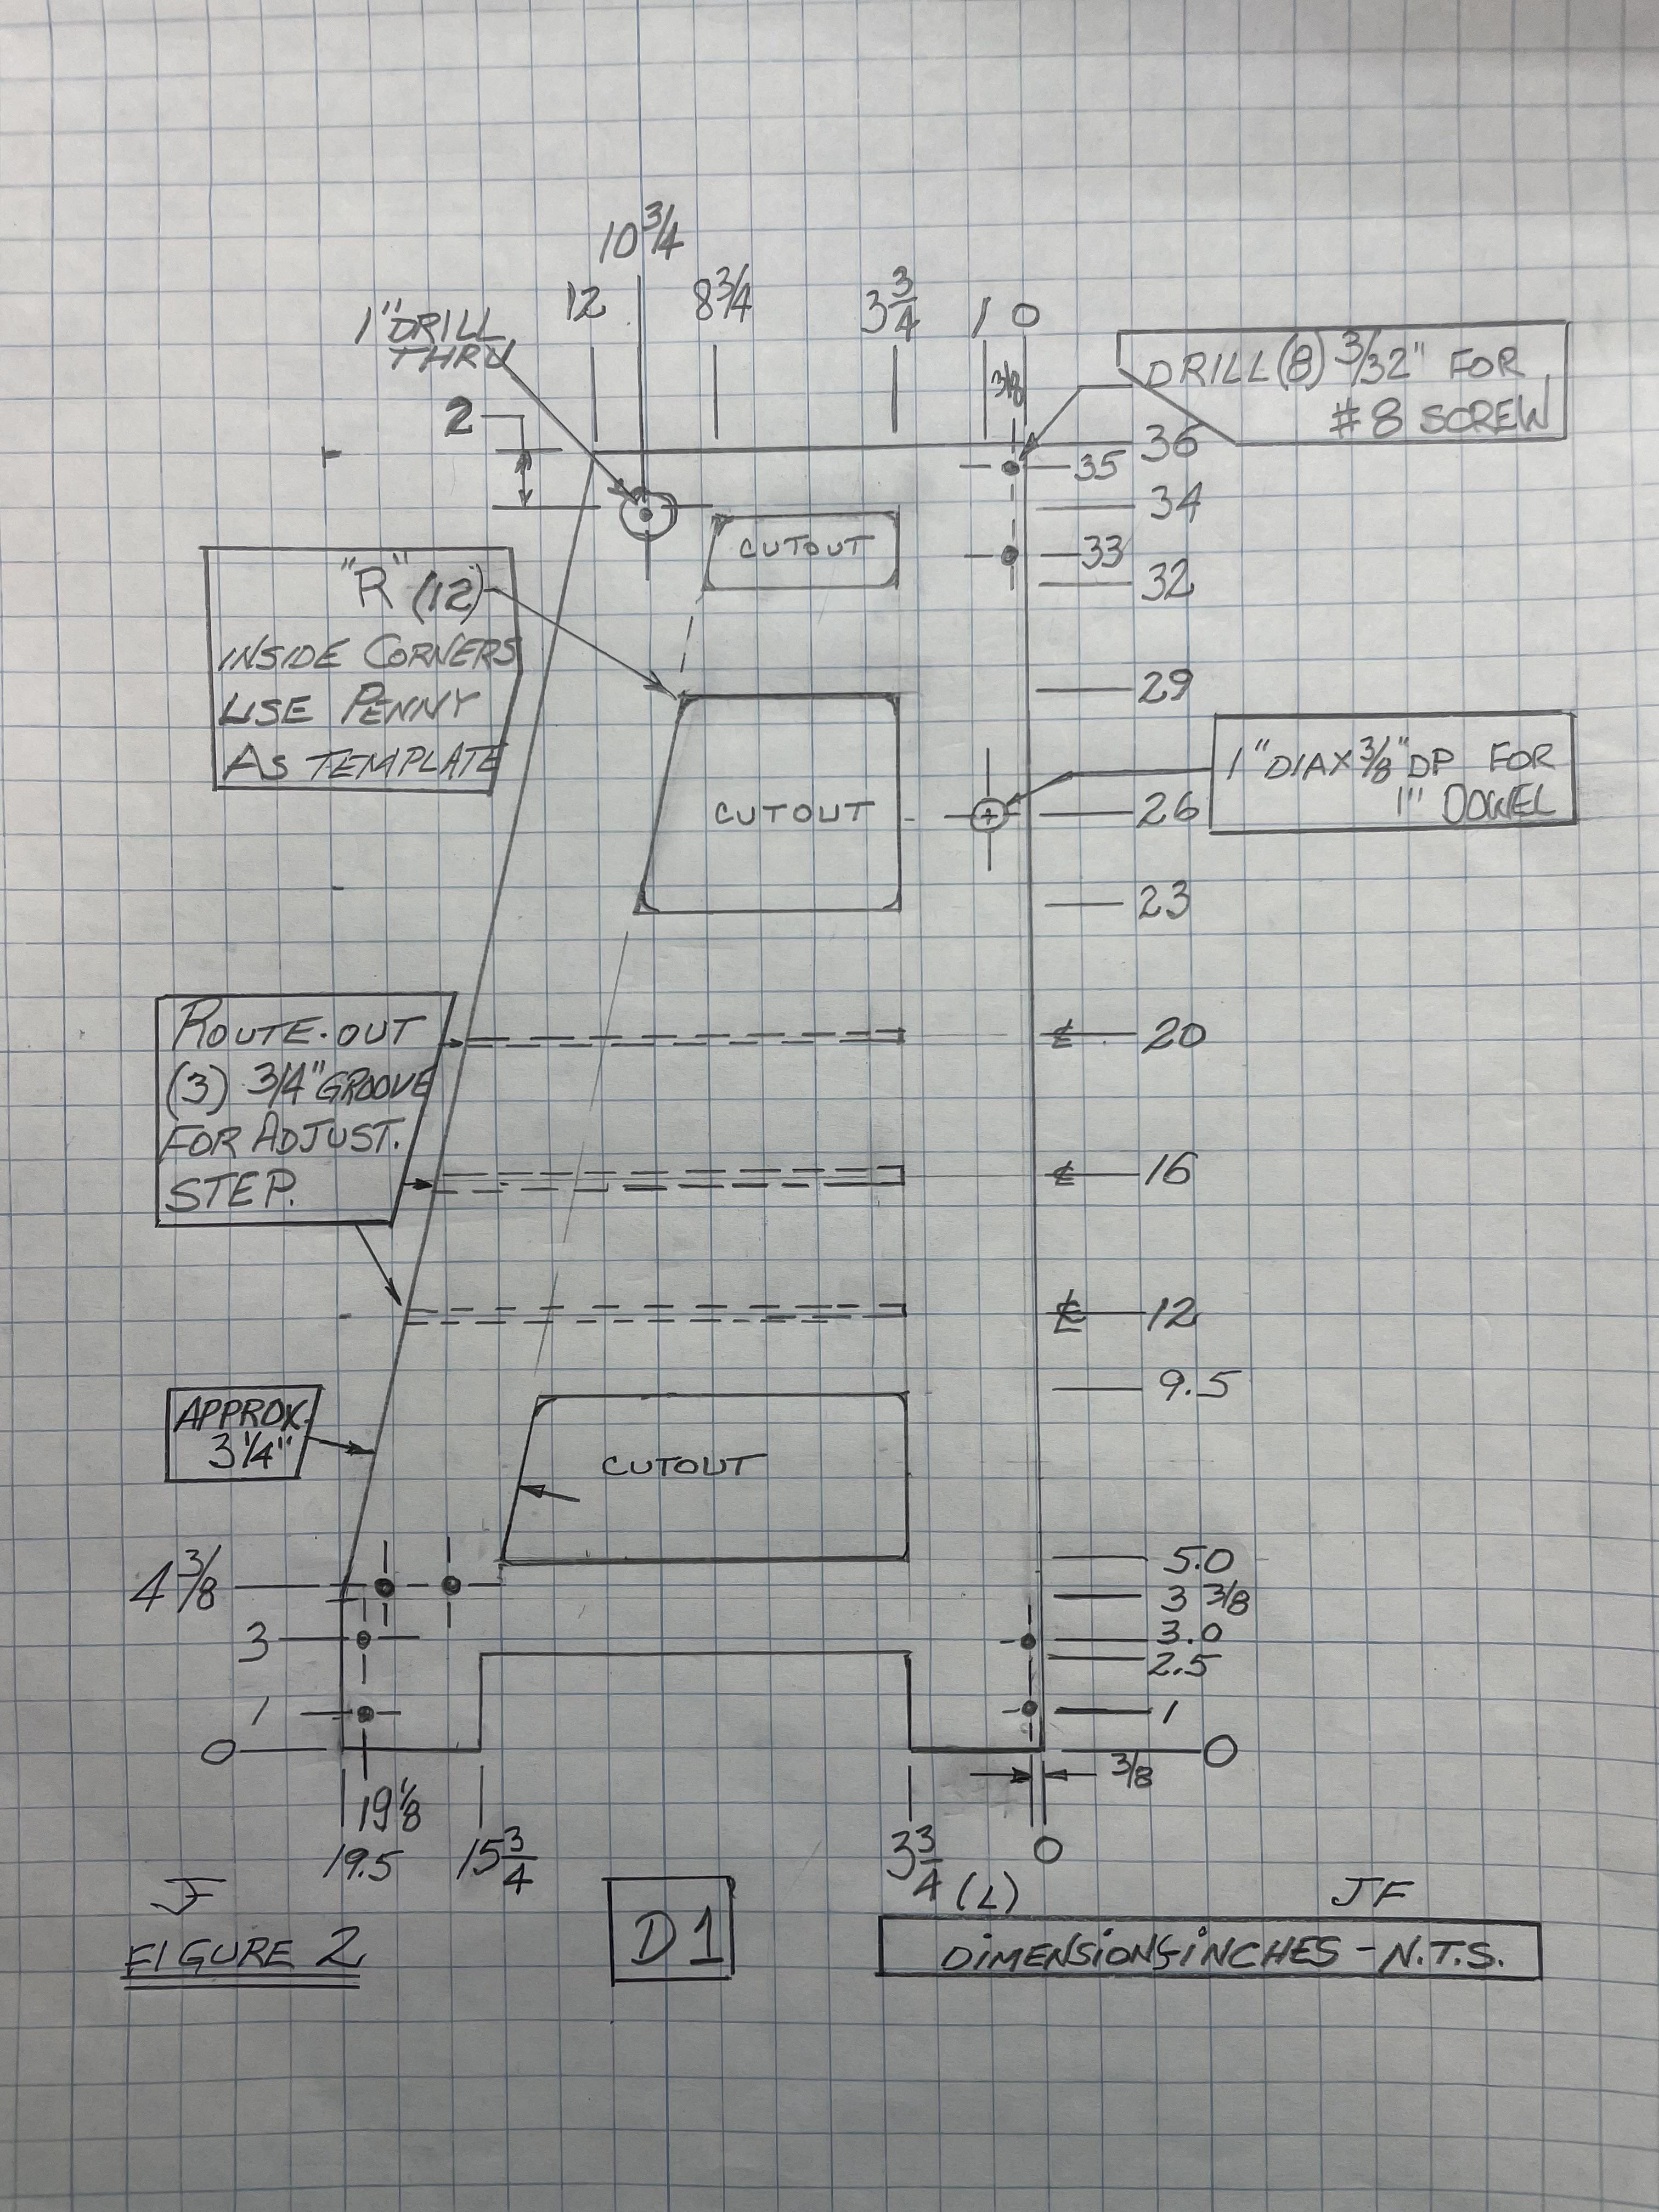 10 3/4
12
8 3/4
3 3/4
1
0
1" DRILL
THRU
3/8
DRILL (8) 3/32" FOR
#8 SCREW
2
36
35
34
33
32
CUTOUT
"R" (12)
INSIDE CORNERS
USE PENNY
AS TEMPLATE
29
1" DIA X 3/8" DP FOR
1" DOWEL
CUTOUT
26
23
ROUTE-OUT
(3) 3/4" GROOVE
FOR ADJUST.
STEP.
℄ 20
℄ 16
℄ 12
9.5
APPROX.
3 1/4"
CUTOUT
4 3/8
3
1
0
5.0
3 3/8
3.0
2.5
1
0
3/8
19 1/8
19.5
15 3/4
3 3/4
0
(L)
JF
JF
FIGURE 2
D1
DIMENSIONS-INCHES - N.T.S.